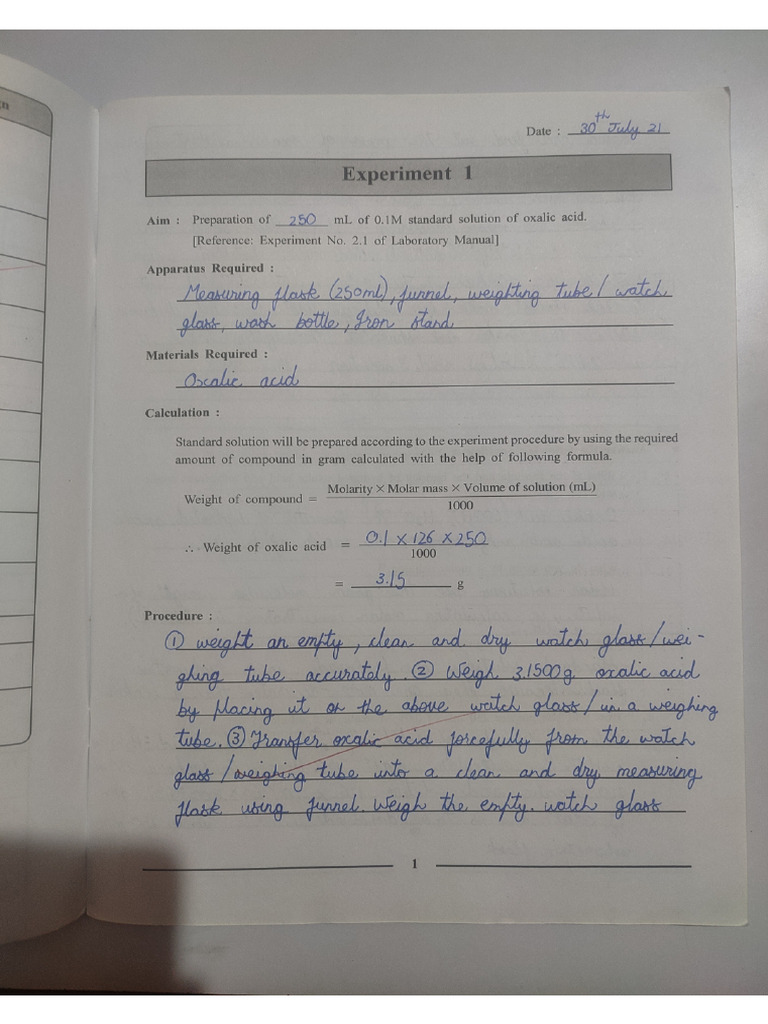 Date : 30th July 21
Experiment 1
Aim : Preparation of 250 mL of 0.1M standard solution of oxalic acid.
[Reference: Experiment No. 2.1 of Laboratory Manual]
Apparatus Required :
Measuring flask (250ml), funnel, weighting tube / watch
glass, wash bottle, Iron stand
Materials Required :
Oxcalic acid
Calculation :
Standard solution will be prepared according to the experiment procedure by using the required
amount of compound in gram calculated with the help of following formula.
Weight of compound = Molarity × Molar mass × Volume of solution (mL)
1000
∴ Weight of oxalic acid = 0.1 × 126 × 250
1000
= 3.15 g
Procedure :
① weight an empty, clean and dry watch glass/wei-
ghing tube accurately. ② Weigh 3.1500g oxalic acid
by placing it on the above watch glass/in a weighing
tube. ③ Transfer oxalic acid forcefully from the watch
glass/weighing tube into a clean and dry measuring
flask using funnel. Weigh the empty. watch glass
1